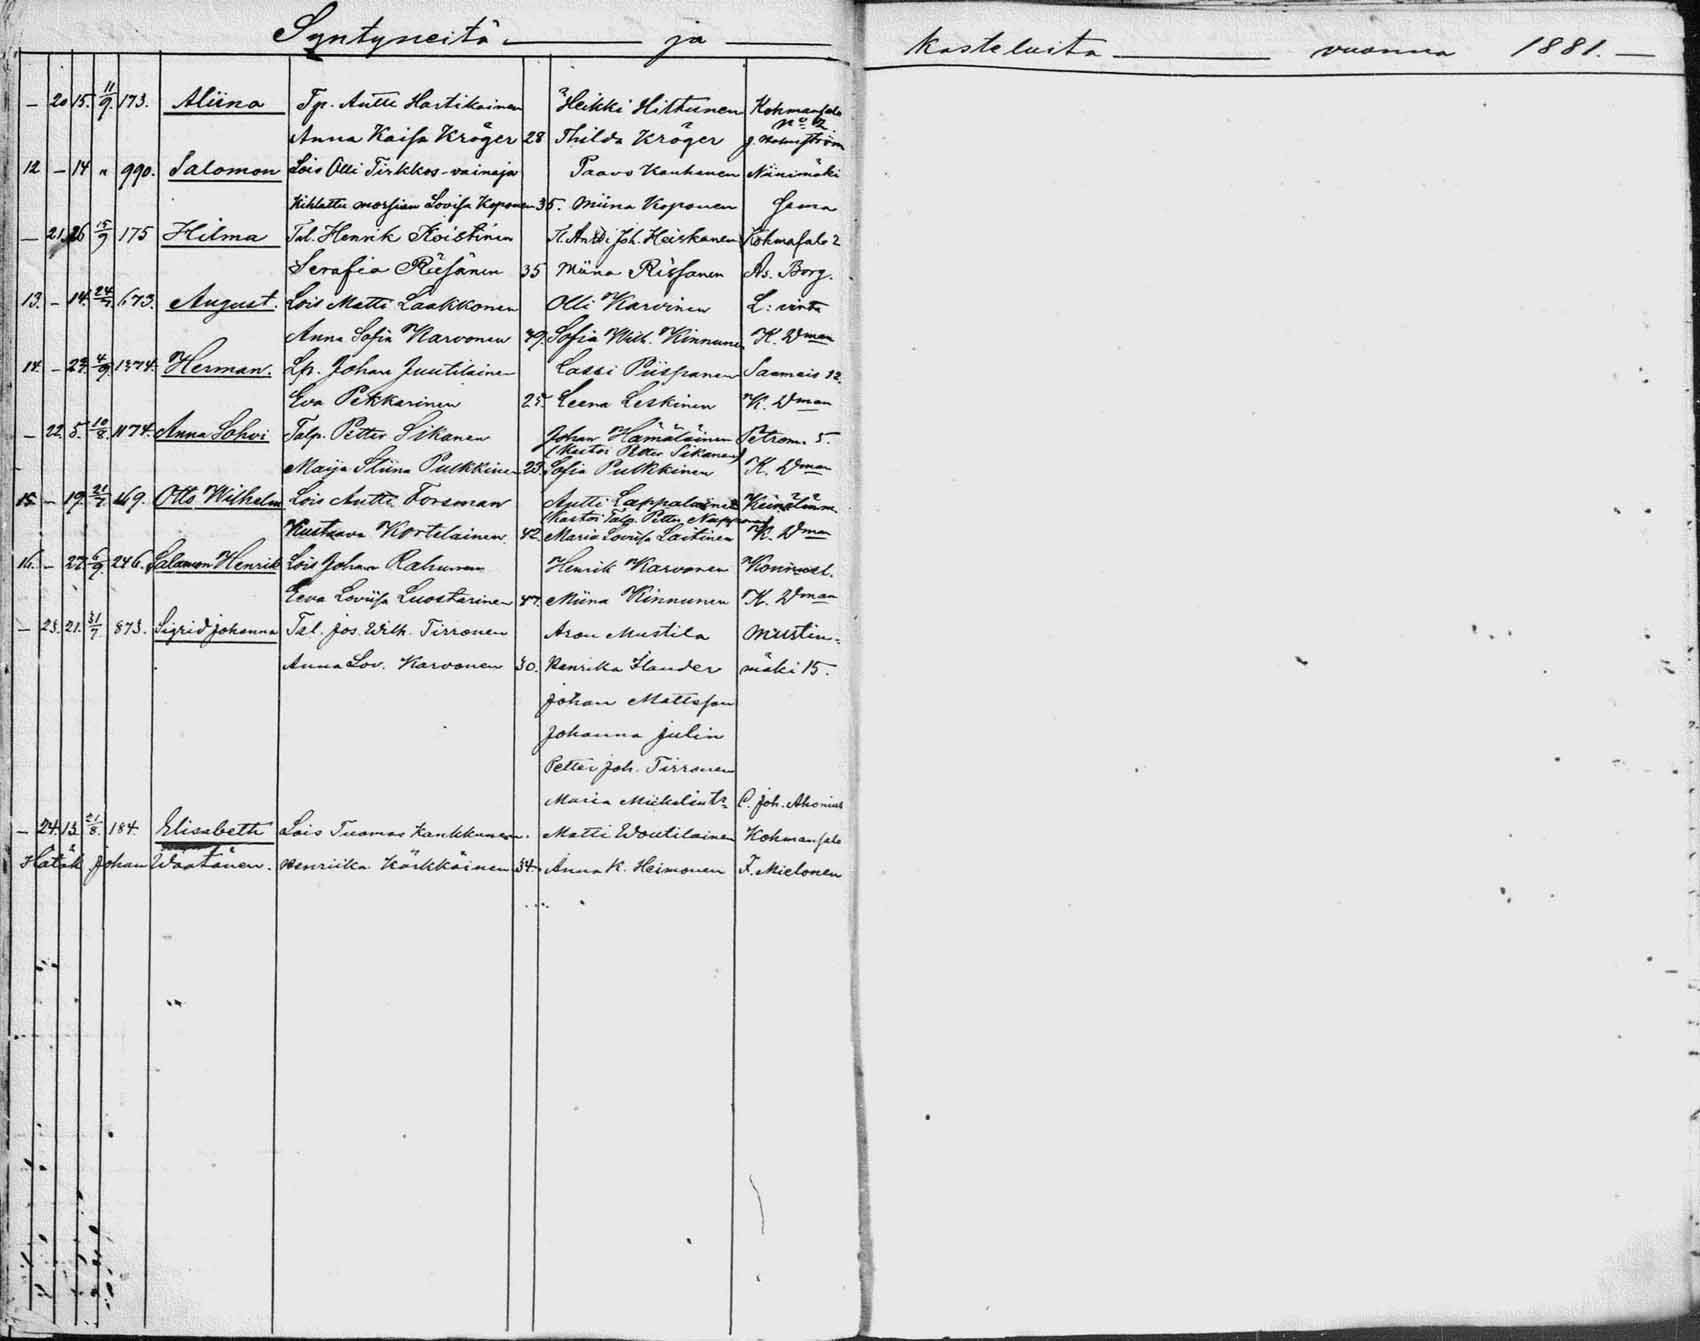 Syntyneitä — ja — kasteluita — vuonna 1881. —
— 20 15. 11/9 173. Aliina Tp. Antti Hartikainen Heikki Hittunen Kohmansalo
No 2
Anna Kaisa Kröger 28 Thilda Kröger
12 — 14 " 990. Salomon Lois Olli Tirkkos-vainaja Paavo Kauhanen Niinimäki
Kihlattu morsian Lovisa Koponen 35. Miina Koponen Sama
— 21. 26 15/9 175 Hilma Tal. Henrik Koistinen Joh. Heiskanen Kohmasalo 2
Serafia Räsänen 35 Miina Rissanen As. Borg.
13. — 14. 24/7 673. August. Lois Matti Laakkonen Olli Karvinen
Anna Sofia Karvonen 39. Sofia Wilh. Kinnunen K. Wman
14. — 23. 4/9 1374. Herman. Lp. Johan Juutilainen Lassi Piispanen Saamais 12.
Eva Pekkarinen 25. Leena Leskinen K. Wman
— 22 5. 10/8 1174. Anna Sohvi Talp. Petter Sikanen Johan Hämäläinen Petrom. 5.
(Kastoi Petter Sikanen)
Maija Stiina Pulkkinen 23. Sofia Pulkkinen K. Wman
15 — 19. 21/7 469. Otto Wilhelm Lois Antti Forsman Antti Lappalainen
(Kastoi Talp. Petter Napponen)
Kustaava Kortelainen. 42. Maria Lovisa Laitinen K. Wman
16. — 27. 6/9. 246. Salomon Henrik Lois Johan Rahunen Henrik Karvonen
Eeva Loviisa Luostarinen 47. Miina Kinnunen K. Wman
— 23. 21. 31/7 873. Sigrid Johanna Tal. Jos. Wilh. Tirronen Aron Mustila Mustin-
Anna Lov. Karvonen 30. Henrika Ilander mäki 15.
Johan Mattsson
Johanna Julin
Petter Joh. Tirronen
Maria C. Joh. Ahonius
— 24. 13. 21/8. 184. Elisabeth Lois Tuomas Kankkunen. Matti Woutilainen Kohmansalo
Hätäk Johan Waatanen. Henriika Kärkkäinen 34. Anna K. Heimonen F. Mielonen